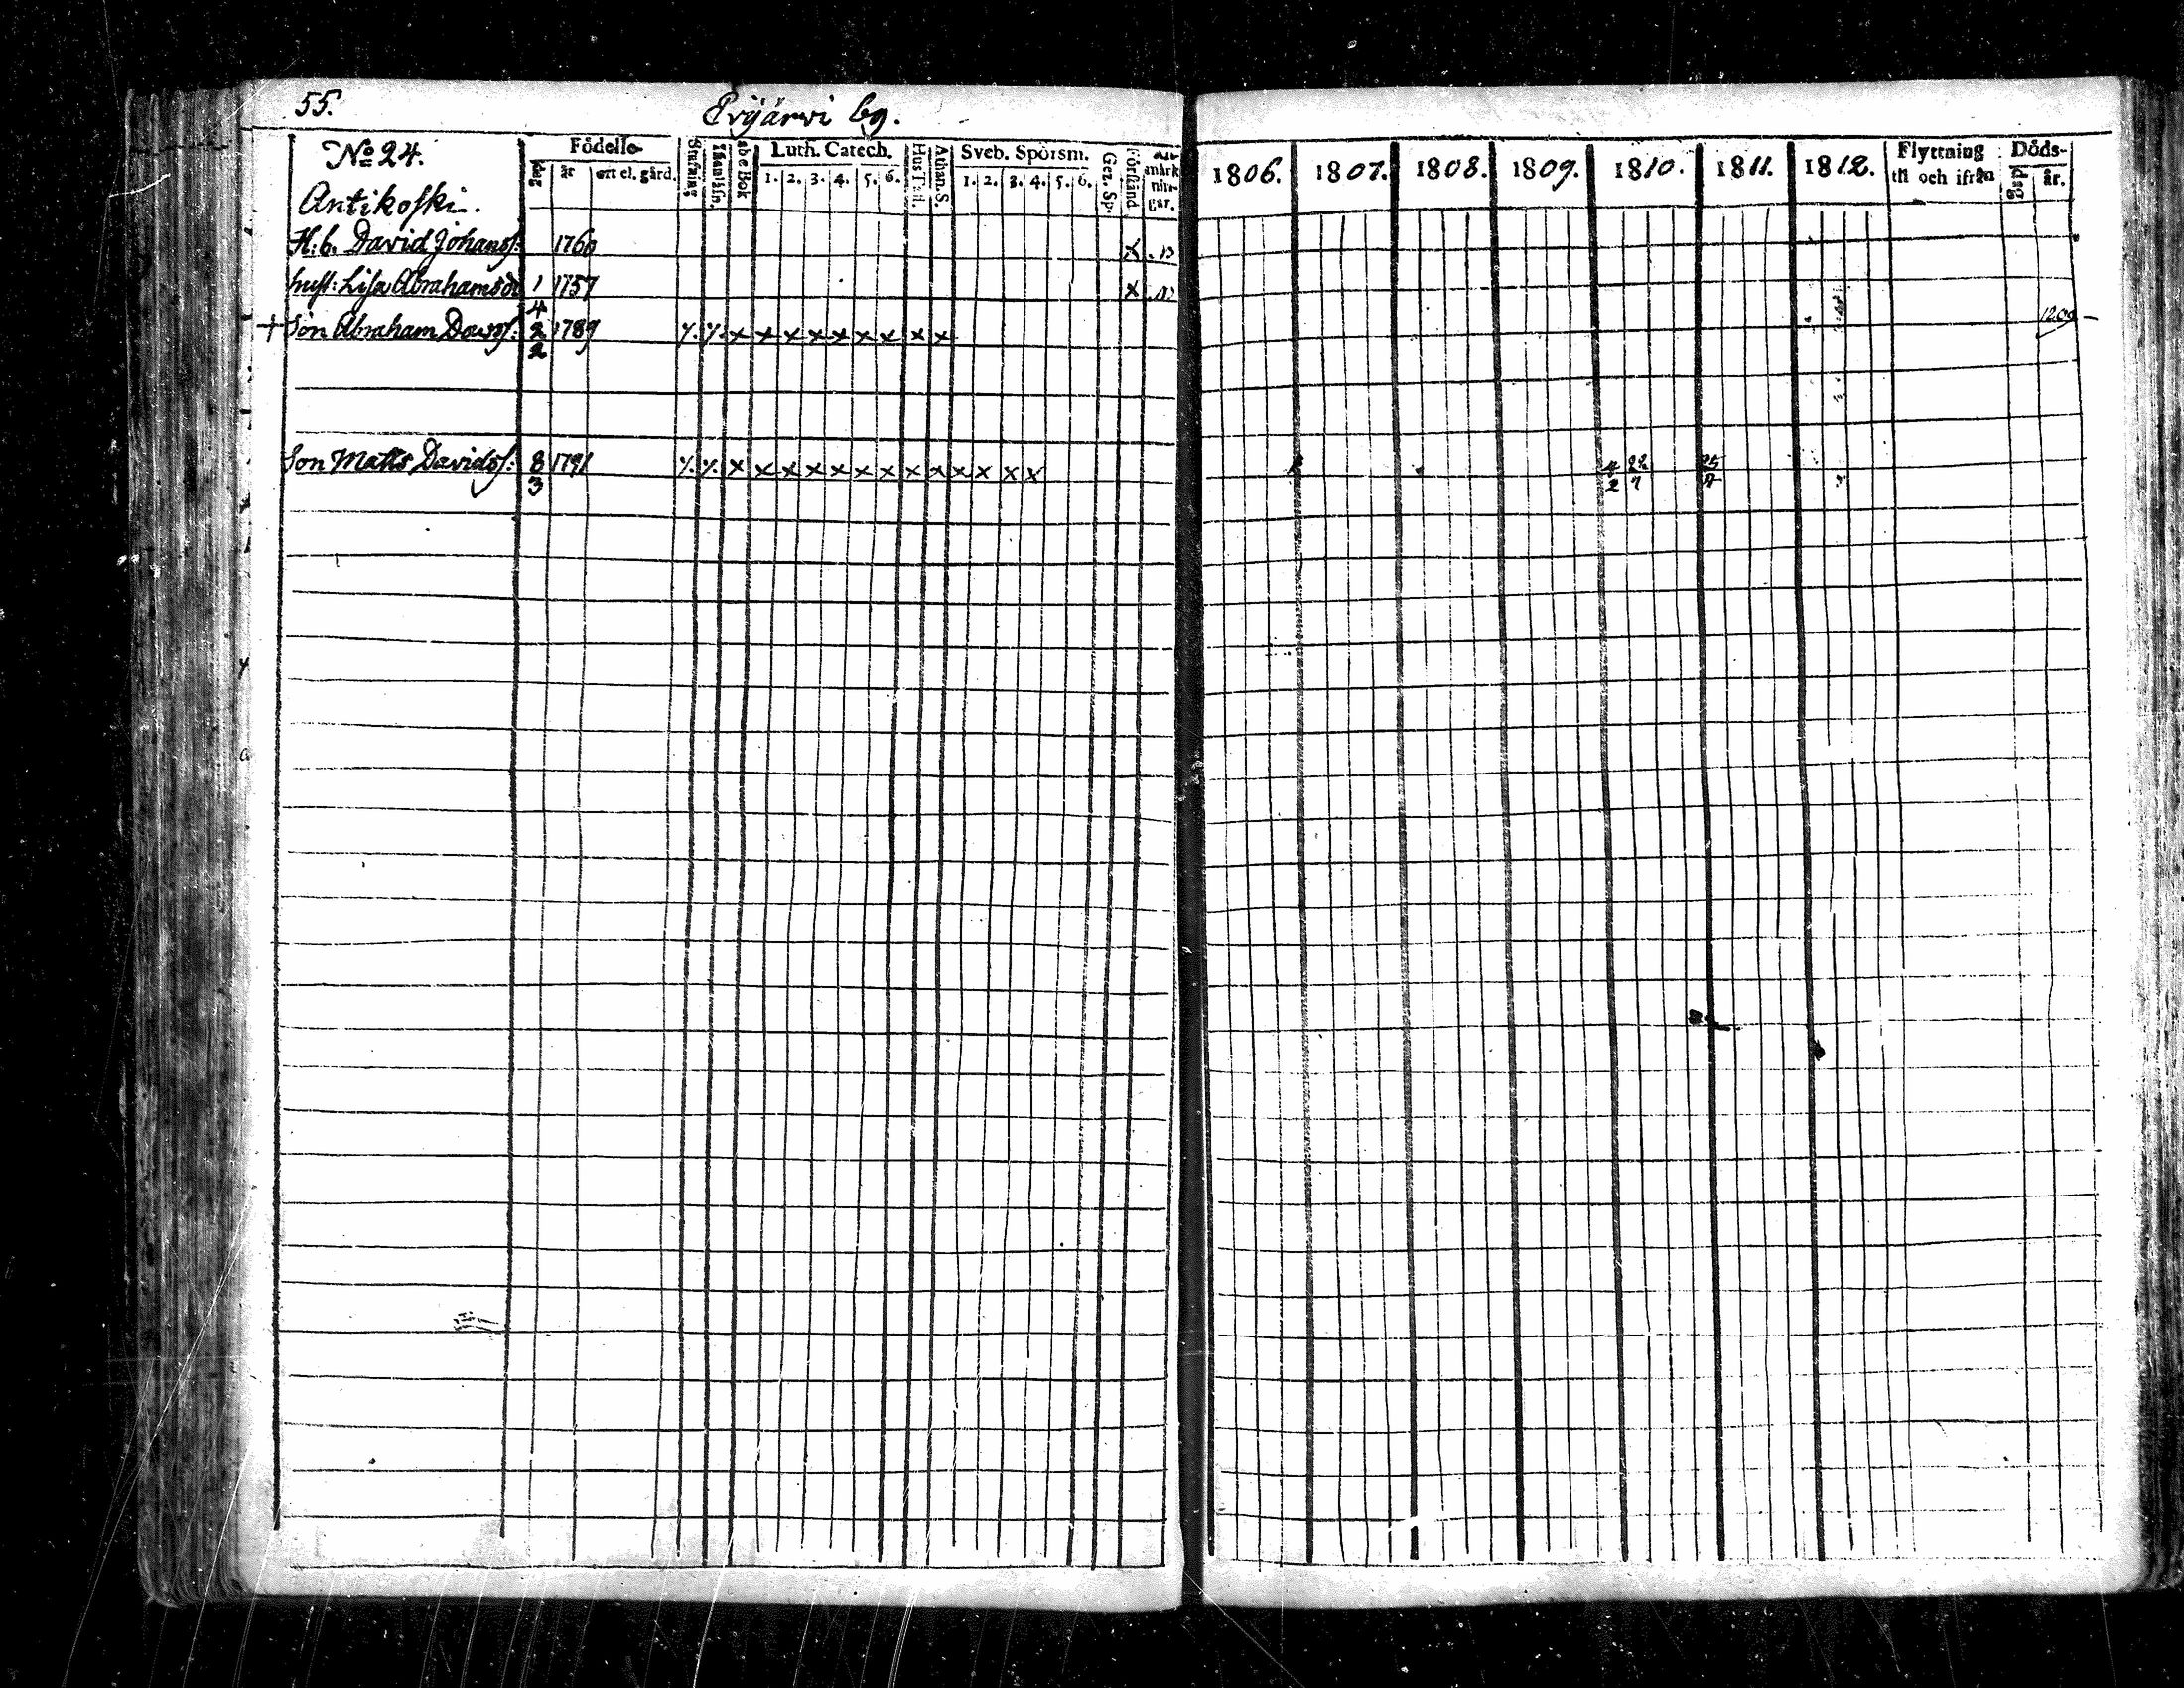 55. Evijärvi by.
No 24. Födelse- Luth. Catech. Sveb. Spörsm. 1806. 1807. 1808. 1809. 1810. 1811. 1812. Flyttning Döds-
dag år ort el. gård. Stafning abc Bok 1. 2. 3. 4. 5. 6. Hus Tafl. Athan. S. 1. 2. 3. 4. 5. 6. Gez. Sp. Förstånd An-märk-nin-gar. til och ifrån dag år.
Antikoski.
H: b. David Johanss: 1760 x
hust: Lisa Abrahamsdr 1/4 1757 x
+ Son Abraham Davidss: 2/2 1789 x x x x x x x x x 1809
Son Matts Davidss: 8/3 1791 x x x x x x x x x x x x x 22/7 25/7